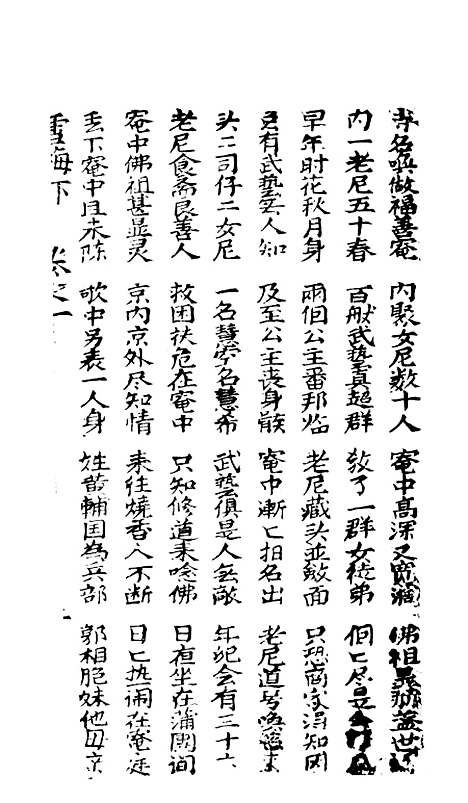 寺名喚做福善庵 内聚女尼数十人 庵中高深又寬濶 佛相
内一老尼五十春 百般武藝真超群 教了一群女徒弟 個匕尽是
早年时花秋月身 兩個公主番邦临 老尼藏头並敛面 只恐商家得知因
更有武藝无人知 及至公主丧身骸 庵中漸匕招名出 老尼道号喚
头二司仔二女尼 一名慧 名慧希 武藝俱是人無敵 年纪会有三十六
老尼食斋良善人 救困扶危在庵中 只知修道来唸佛 日夜坐在蒲團間
庵中佛祖甚显灵 京内京外尽知情 来往燒香人不断 日匕热闹在庵廷
丢下庵中且未陈 歌中另表一人身 姓黄輔国為兵部 郭相胞妹他母亲
雪梅下 卷之一